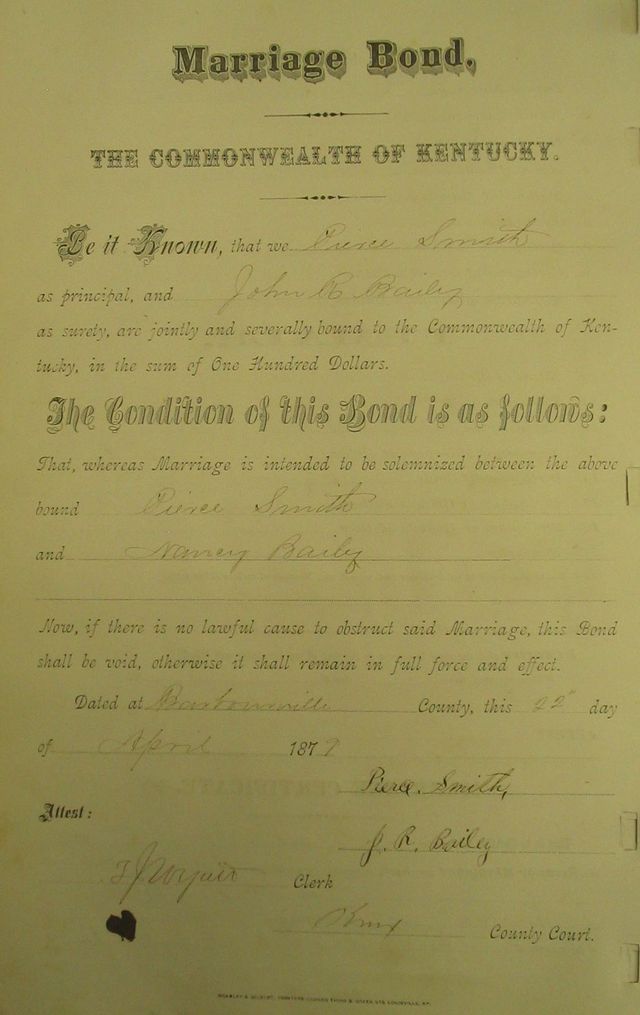 Marriage Bond.
THE COMMONWEALTH OF KENTUCKY.
Be it Known, that we Pierce Smith
as principal, and John R Bailey
as surety, are jointly and severally bound to the Commonwealth of Ken-
tucky, in the sum of One Hundred Dollars.
The Condition of this Bond is as follows:
That, whereas Marriage is intended to be solemnized between the above
bound Pierce Smith
and Nancy Bailey
Now, if there is no lawful cause to obstruct said Marriage, this Bond
shall be void, otherwise it shall remain in full force and effect.
Dated at Barbourville County, this 22" day
of April 1879
Pierce. Smith,
Attest:
J. R. Bailey
Clerk
Knox County Court.
BRADLEY & GILBERT, PRINTERS CORNER THIRD & GREEN STS LOUISVILLE, KY.